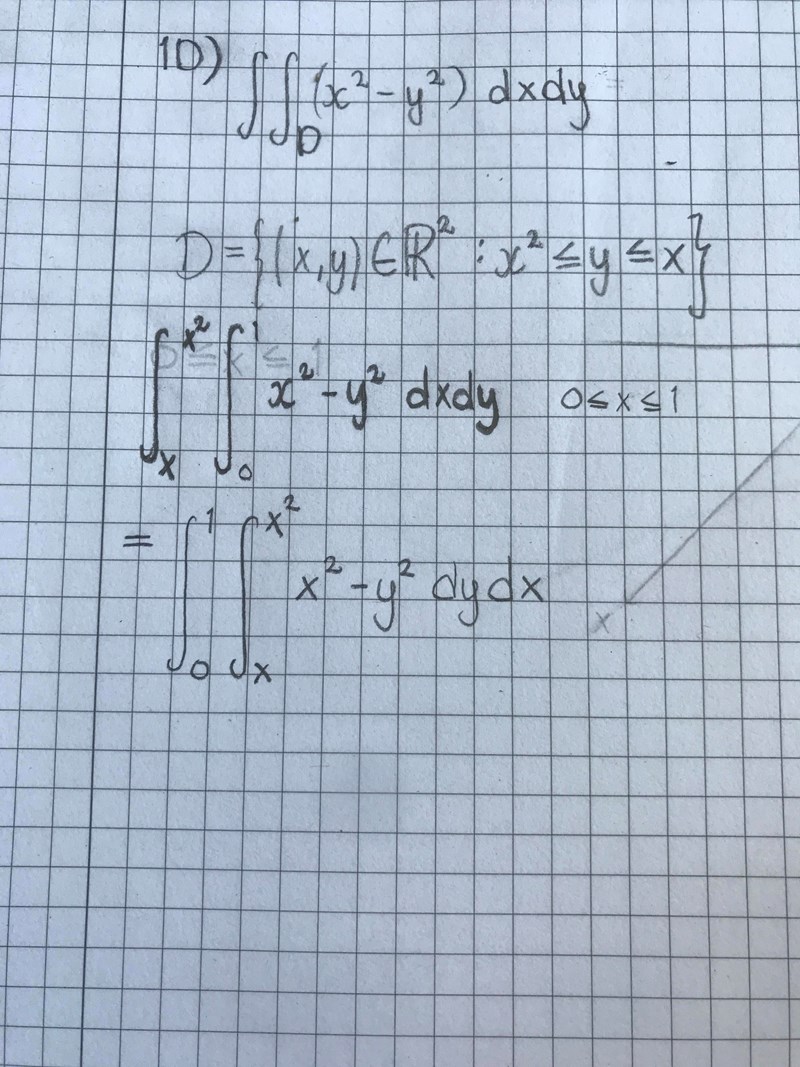 10) ∫∫_D (x² - y²) dxdy
D = {(x,y) ∈ ℝ² : x² ≤ y ≤ x}
0 ≤ x ≤ 1
∫_x^{x²} ∫_0^1 x² - y² dxdy 0 ≤ x ≤ 1
= ∫_0^1 ∫_x^{x²} x² - y² dydx
x